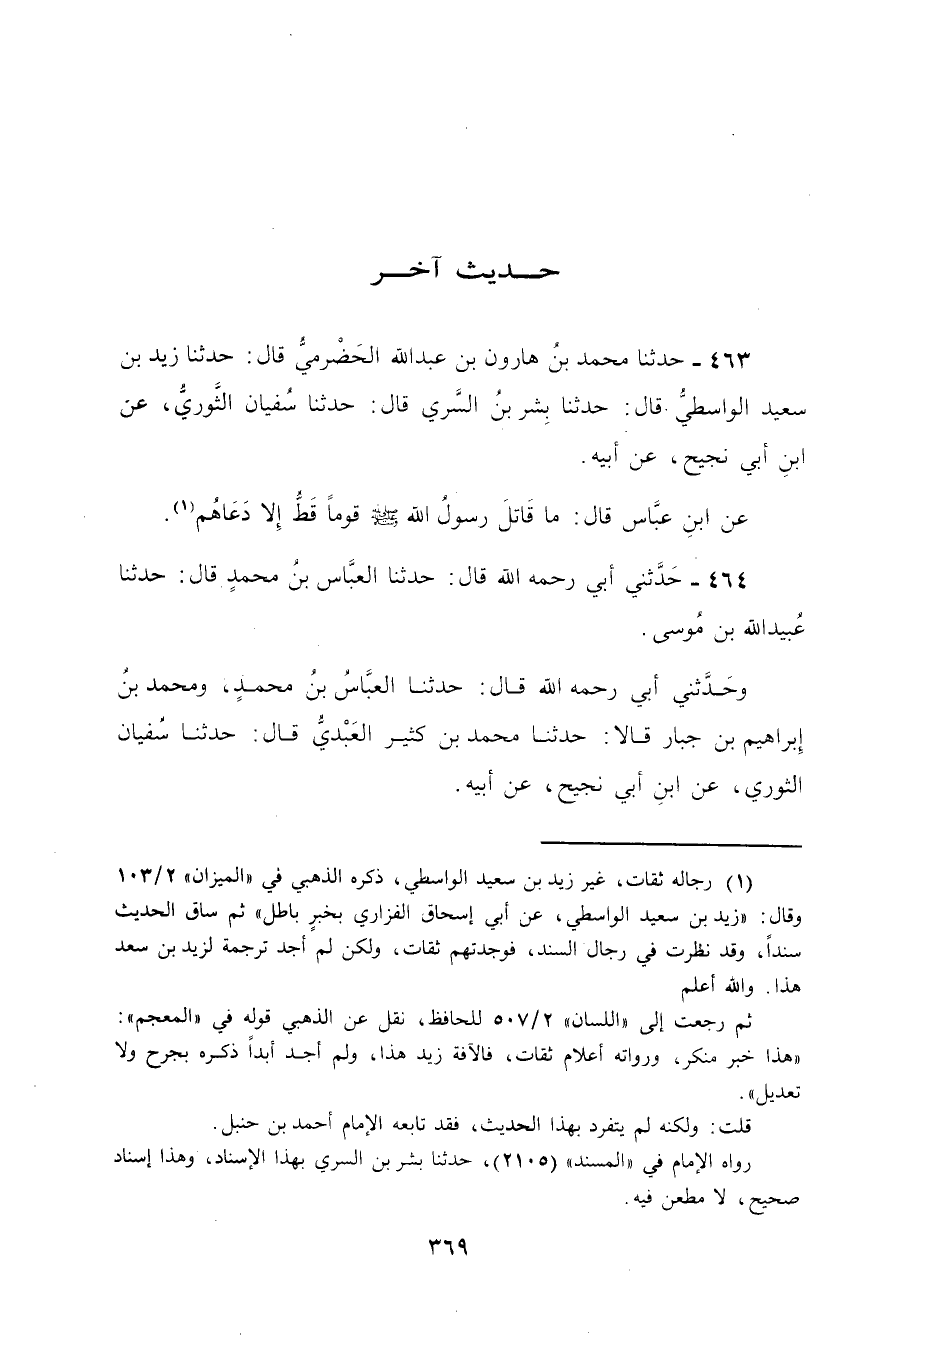 حـــديث آخـــر
٤٦٣ ـ حدثنا محمد بنُ هارون بن عبدالله الحَضْرميُّ قال: حدثنا زيد بن
سعيد الواسطيُّ قال: حدثنا بِشر بنُ السَّري قال: حدثنا سُفيان الثَّوريُّ، عن
ابنِ أبي نجيح، عن أبيه.
عن ابنِ عبَّاس قال: ما قَاتلَ رسولُ الله ﷺ قوماً قَطُّ إلا دَعَاهُم(١).
٤٦٤ ـ حَدَّثني أبي رحمه الله قال: حدثنا العبَّاس بنُ محمدٍ قال: حدثنا
عُبيدالله بن مُوسى.
وحَـدَّثني أبي رحمه الله قـال: حدثنـا العبَّاسُ بنُ محمـدٍ، ومحمد بنُ
إبراهيم بن جبار قـالا: حدثنـا محمد بن كثيـر العَبْديُّ قـال: حدثنـا سُفيان
الثوري، عن ابنِ أبي نجيح، عن أبيه.
(١) رجاله ثقات، غير زيد بن سعيد الواسطي، ذكره الذهبي في «الميزان» ١٠٣/٢
وقال: «زيد بن سعيد الواسطي، عن أبي إسحاق الفزاري بخبرٍ باطل» ثم ساق الحديث
سنداً، وقد نظرت في رجال السند، فوجدتهم ثقات، ولكن لم أجد ترجمة لزيد بن سعد
هذا. والله أعلم
ثم رجعت إلى «اللسان» ٥٠٧/٢ للحافظ، نقل عن الذهبي قوله في «المعجم»:
«هذا خبر منكر، ورواته أعلام ثقات، فالآفة زيد هذا، ولم أجـد أبداً ذكـره بجرح ولا
تعديل».
قلت: ولكنه لم يتفرد بهذا الحديث، فقد تابعه الإمام أحمد بن حنبل.
رواه الإمام في «المسند» (٢١٠٥)، حدثنا بشر بن السري بهذا الإسناد، وهذا إسناد
صحيح، لا مطعن فيه.
٣٦٩